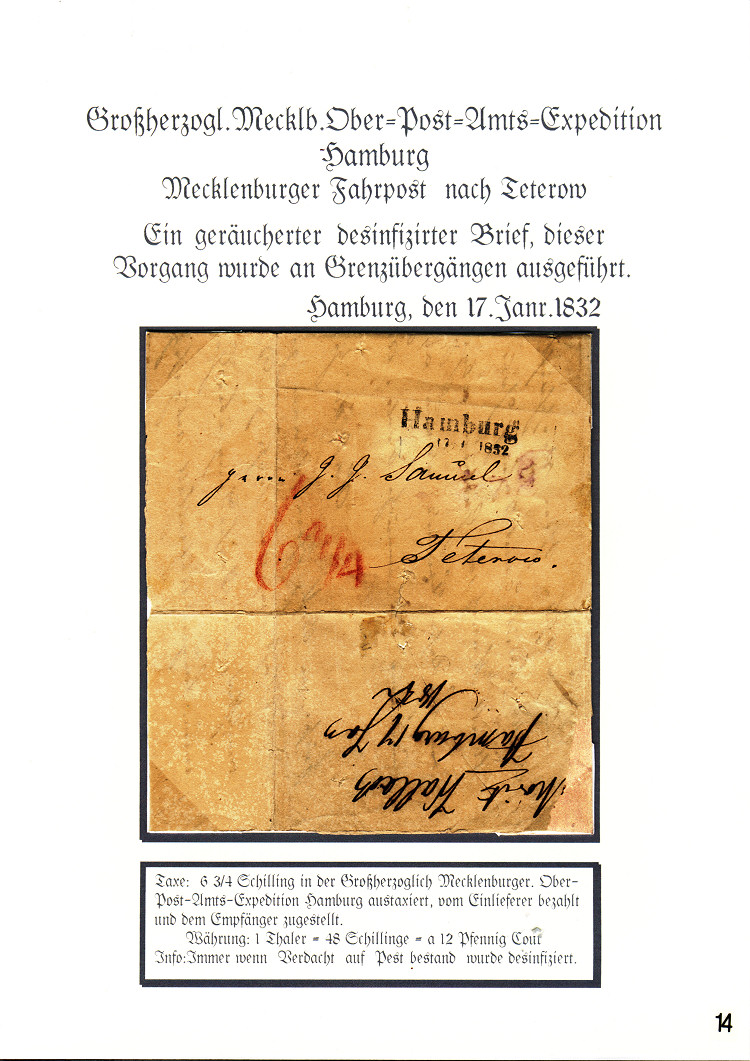 Großherzogl.Mecklb.Ober=Post=Amts=Expedition
Hamburg
Mecklenburger Fahrpost nach Teterow
Ein geräucherter desinfizirter Brief, dieser
Vorgang wurde an Grenzübergängen ausgeführt.
Hamburg, den 17.Janr.1832
Hamburg
17 1 1832
Herrn J. J. Samuel
6 3/4
Teterow.
Hamburg 17 Jan
1832
Taxe: 6 3/4 Schilling in der Großherzoglich Mecklenburger. Ober-
Post-Amts-Expedition Hamburg austaxiert, vom Einlieferer bezahlt
und dem Empfänger zugestellt.
Währung: 1 Thaler = 48 Schillinge = a 12 Pfennig Cour
Info:Immer wenn Verdacht auf Pest bestand wurde desinfiziert.
14